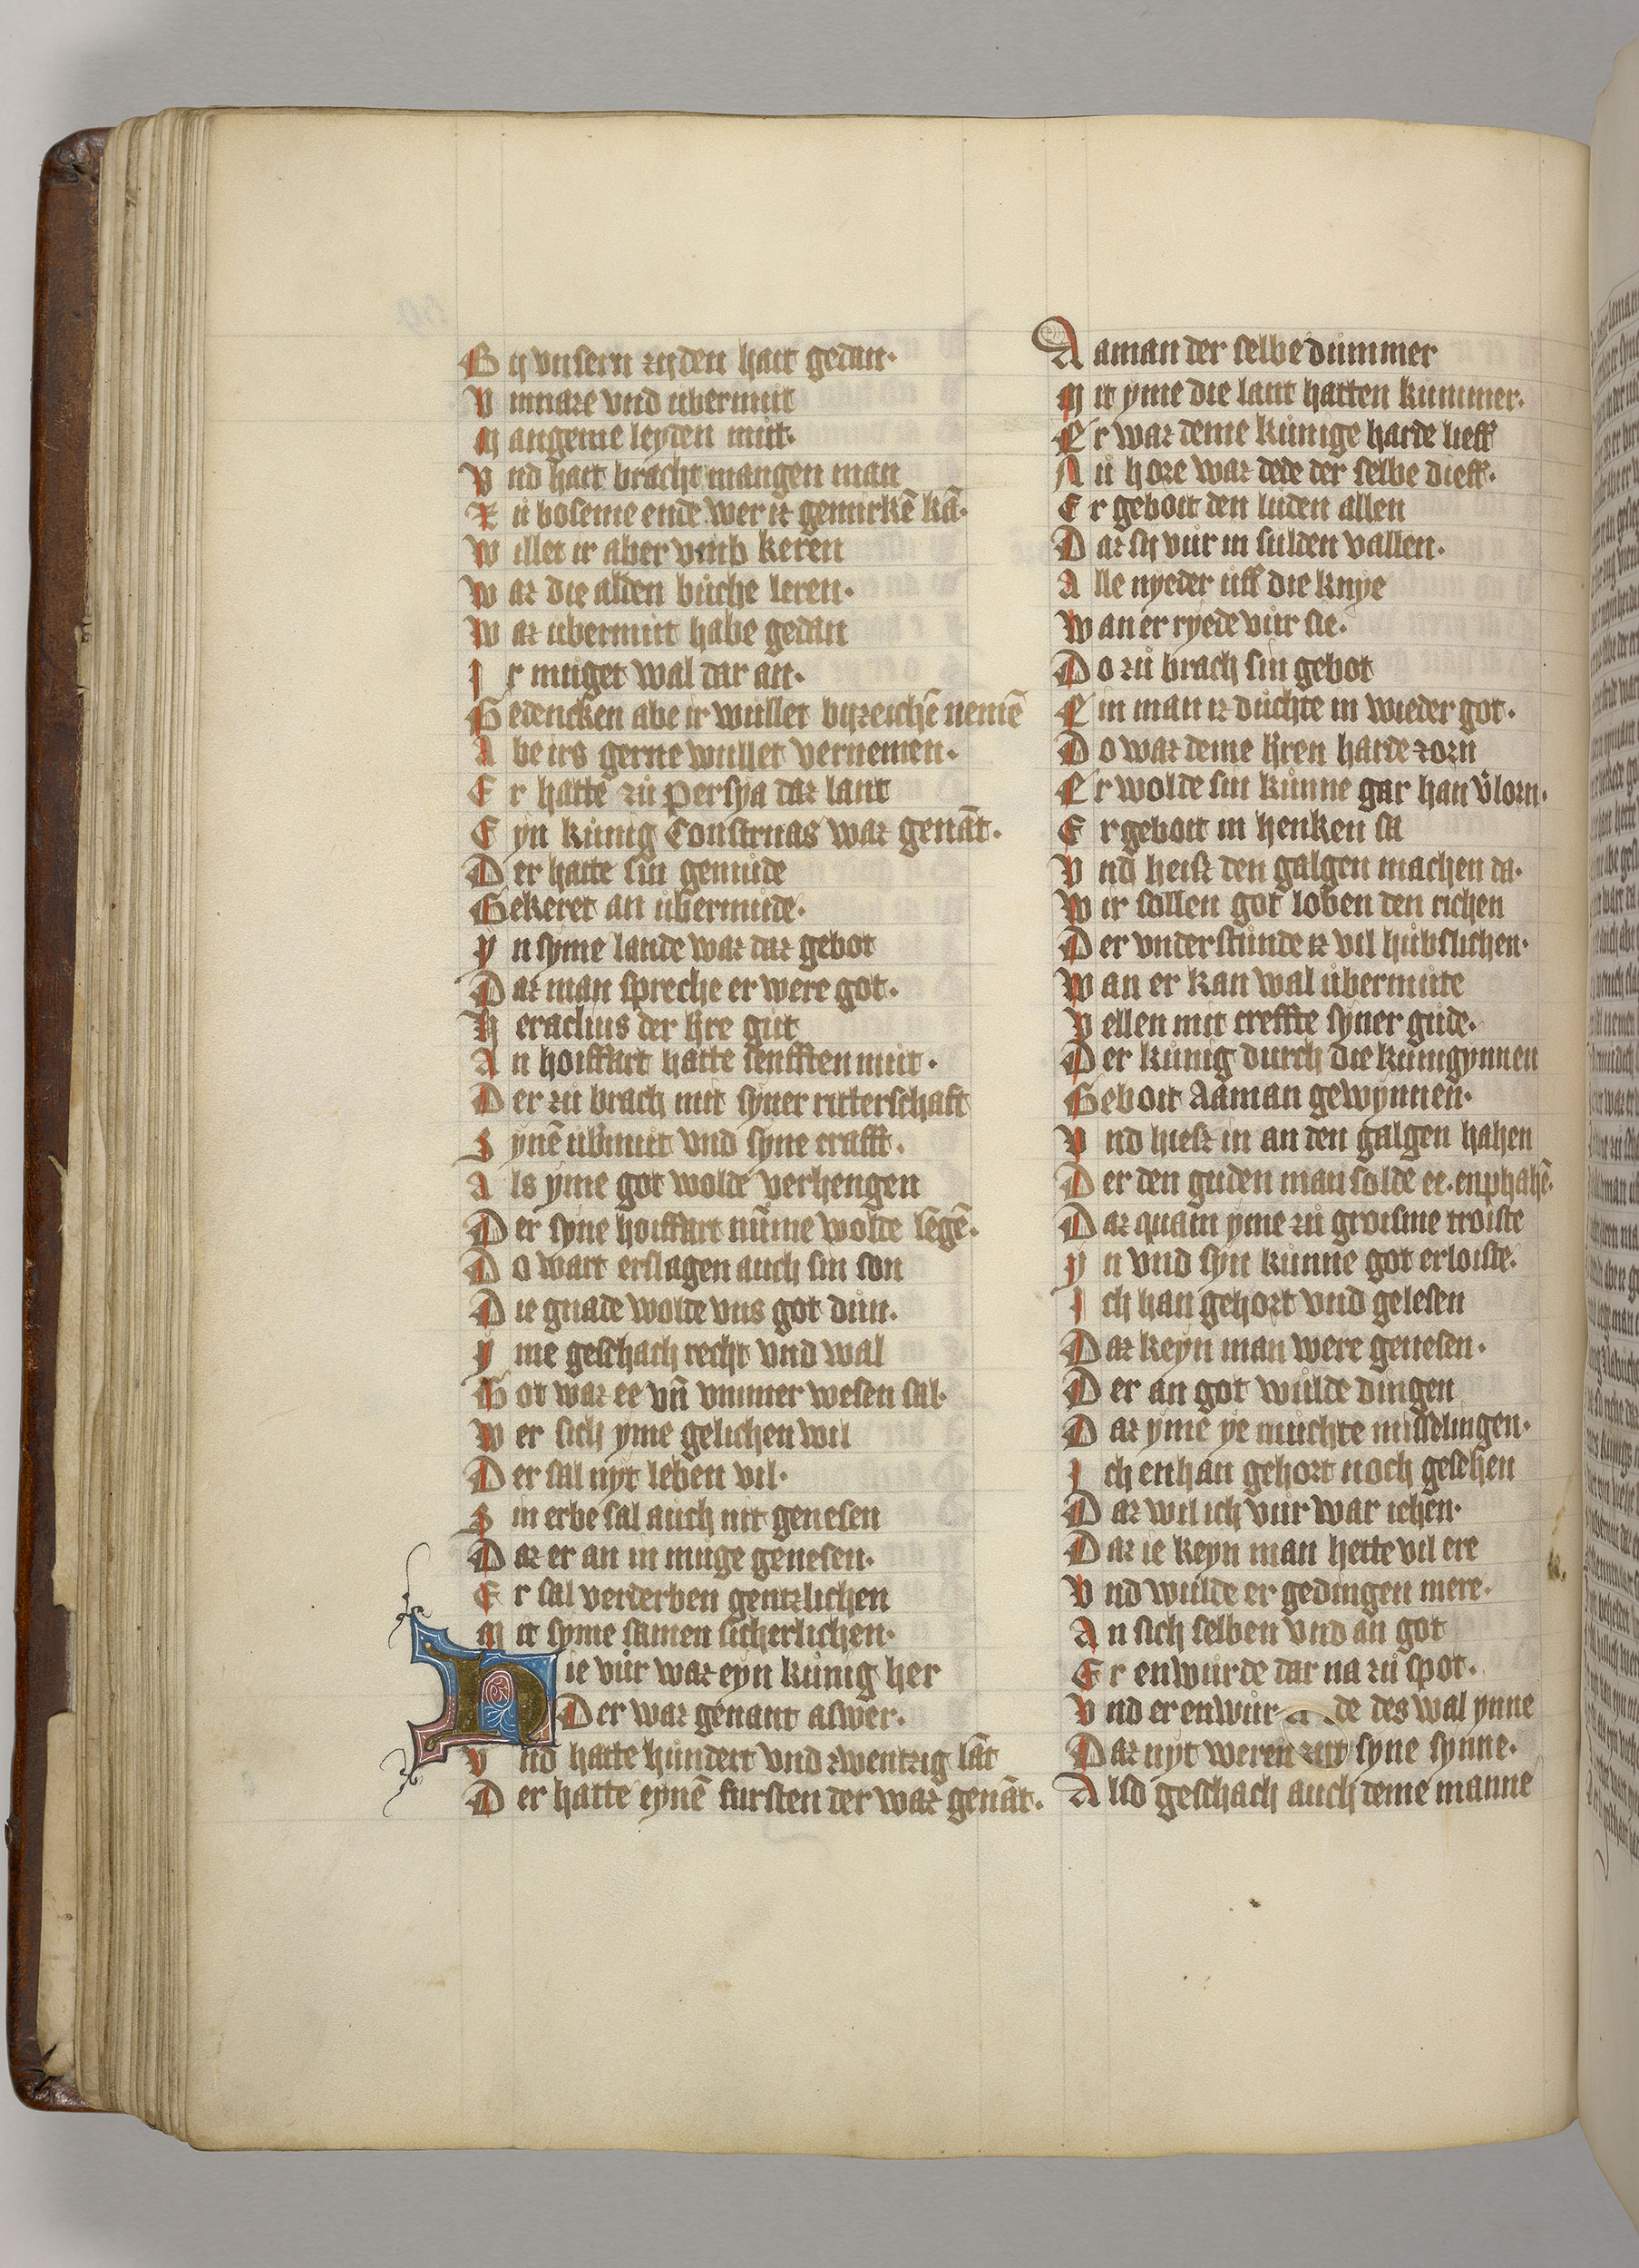 By vnsern zyden hatt gedan·
Vnmaze vnd ubermut
Mangeme leyden mut·
Vnd hatt bracht mangen man
Zů boseme ende wer iz gemirkē kā·
Willet ir aber vmb keren
Waz die alden bůche leren·
Waz ubermut habe gedan
Ir muget wal dar an·
Gedencken abe ir wullet byzeichē nemē
Abe irs gerne wullet vernemen·
Er hatte zů Persya daz lant
Eyn kůnig Construas waz genāt·
Der hatte sin gemude
Gekeret an ubermude·
Yn syme lande waz daz gebot
Daz man spreche er were got·
Heraclius der h're gut
An hoiffart hatte senfften mut·
Der zů brach mit syner ritterschaft
Synē ub'mut vnd syne crafft·
Als yme got wolde verhengen
Der syne hoiffart nūme wolde lēgē·
Do wart erslagen auch sin son
Die gnade wolde vns got důn·
Yme geschach recht vnd wal
Got waz ee vn̄ vmmer wesen sal·
Wer sich yme gelichen wil
Der sal nyt leben vil·
Sin erbe sal auch nit genesen
Daz er an in muge genesen·
Er sal verderben gentzlichen
Mit syme samen sicherlichen·
Hie vůr waz eyn kůnig her
Der waz genant aswer·
Vnd hatte hůndert vnd zwentzig lāt
Der hatte eynē fursten der waz genāt·
Aaman der selbe dummer
Mit yme die lant hatten kummer·
Er waz deme kůnige harde lieff
Nů hore waz dede der selbe dieff·
Er geboit den luden allen
Daz sy vůr in sulden vallen·
Alle nyeder uff die knye
Wan er ryede vůr sie·
Do zů brach sin gebot
Ein man iz důchte in wieder got·
Do waz deme h'ren harde zorn
Er wolde sin kůnne gar han v'lorn·
Er geboit in henken sa
Vnd heiß den galgen machen da·
Wir sollen got loben den richen
Der vnderstůnde iz vil hůbslichen·
Wan er kan wal ůbermute
Vellen mit creffte syner gude·
Der kůnig durch die kůnigynnen
Geboit Aaman gewynnen·
Vnd hieß in an den galgen hahen
Der den guden man solde ee·enphahē·
Daz quam yme zů groisme troiste
Yn vnd syn kůnne got erloiste·
Ich han gehort vnd gelesen
Daz keyn man were genesen·
Der an got wůlde dingen
Daz yme ye muchte misselingen·
Ich enhan gehort noch gesehen
Daz wil ich vůr war iehen·
Daz ie keyn man hette vil ere
Vnd wulde er gedingen mere·
An sich selben vnd an got
Er enwurde dar na zů spot·
Vnd er enwůr de des wal ynne
Daz nyt weren syne synne·
Also geschach auch deme manne